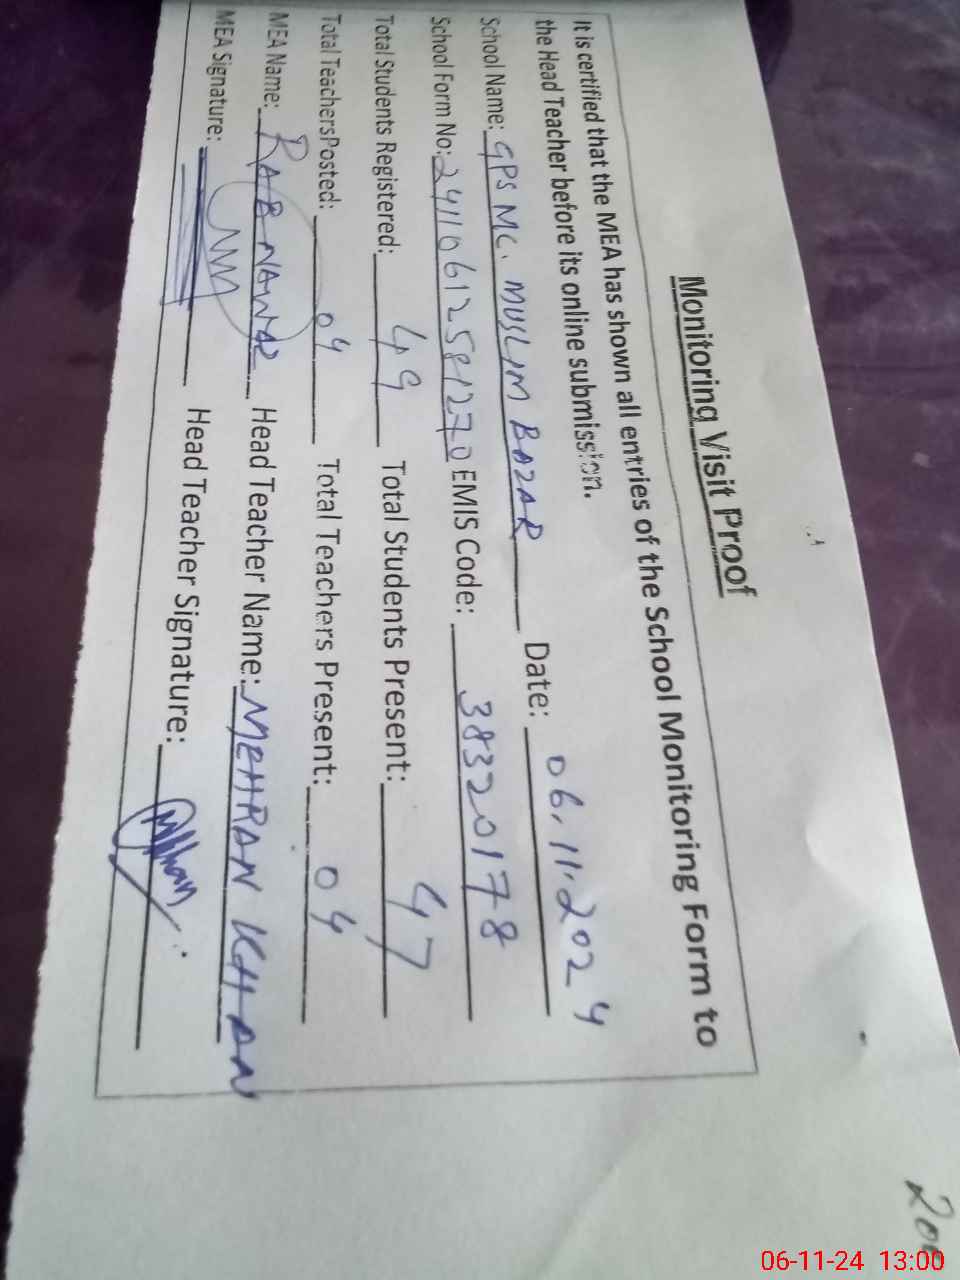 Monitoring Visit Proof
It is certified that the MEA has shown all entries of the School Monitoring Form to
the Head Teacher before its online submission.
School Name: GPS MC. MUSLIM BAZAR Date: 06.11.2024
School Form No: 24110612581270 EMIS Code: 38320178
Total Students Registered: 49 Total Students Present: 47
Total TeachersPosted: 04 Total Teachers Present: 04
MEA Name: RAB NAWAZ Head Teacher Name: MEHRAN KHAN
MEA Signature: Head Teacher Signature:
06-11-24 13:00